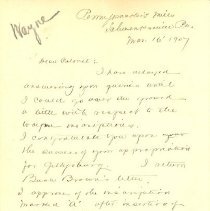 Wayne
Pennypacker's Mills
Schwenksville Pa.
Mar. 16 1907
Dear Colonel:
I have delayed
answering your quaries until
I could go over the ground
a little with respect to the
Wayne inscriptions.
I congratulate you upon
the success of your appropriation
for Gettysburg. I return
Brown's letter.
I approve of the inscription
marked "A" after inserting